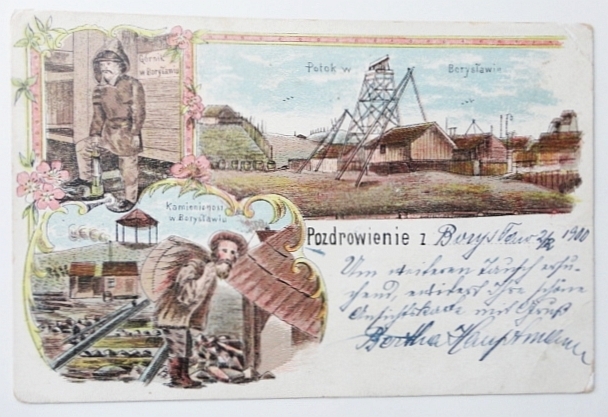 Górnik
w Borysławiu
Potok w Borysławiu
Kamieniarz
w Borysławiu
Pozdrowienie z Borysław 2/2 1900
Um weiteren Tausch ersu-
chend, erwidert Ihre schöne
Ansichtskarte mit Gruß
Bertha Hauptmann